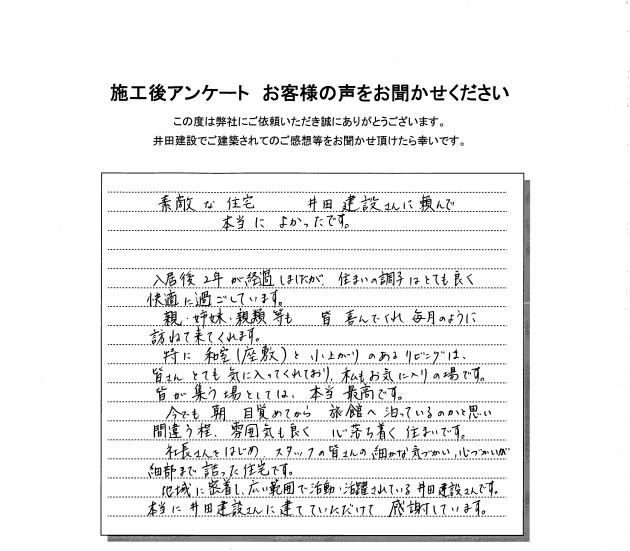 施工後アンケート お客様の声をお聞かせください
この度は弊社にご依頼いただき誠にありがとうございます。
井田建設でご建築されてのご感想等をお聞かせ頂けたら幸いです。
素敵な住宅 井田建設さんに頼んで
本当によかったです。
入居後2年が経過しましたが、住まいの調子はとても良く
快適に過ごしています。
親・姉妹・親類等も 皆 喜んでくれ 毎月のように
訪ねて来てくれます。
特に 和室(座敷)と 小上がりのあるリビングは、
皆さん とても気に入ってくれており、私もお気に入りの場です。
皆が集う場としては、本当 最高です。
今でも 朝 目覚めてから 旅館へ泊っているのかと思い
間違う程、雰囲気も良く 心落ち着く住まいです。
社長さんをはじめ、スタッフの皆さんの細かな気づかい、心づかいが
細部まで詰った住宅です。
地域に密着し、広い範囲で活動・活躍されている井田建設さんです。
本当に井田建設さんに建てていただけて 感謝しています。